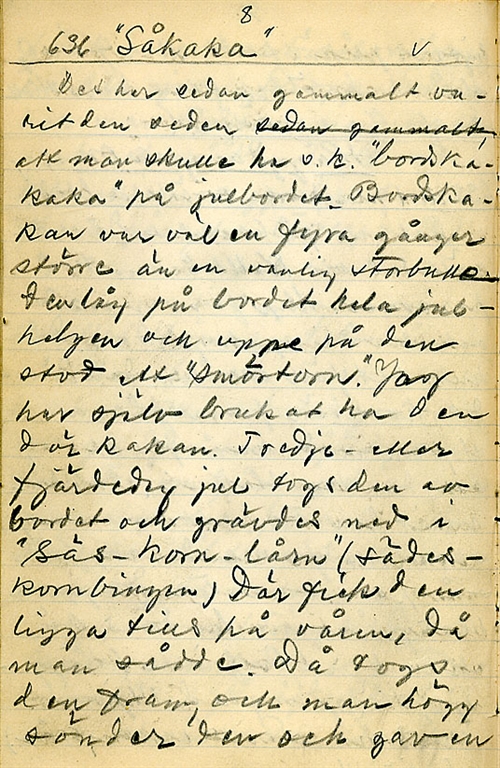 8
636 "Såkaka" v
Det har sedan gammalt va-
rit den seden sedan gammalt,
att man skulle ha s.k. "bordska-
kaka" på julbordet. Bordska-
kan var väl en fyra gånger
större än en vanlig storbulle.
Den låg på bordet hela jul-
helgen och uppe på den
stod ett "smörtorn." Jag
har själv brukat ha den
där kakan. Tredje- eller
fjärdedag jul togs den av
bordet och grävdes ned i
"Säs-korn-lårn" (sädes-
kornbingen) Där fick den
ligga tills på våren, då
man sådde. Då togs
den fram, och man högg
sönder den och gav en